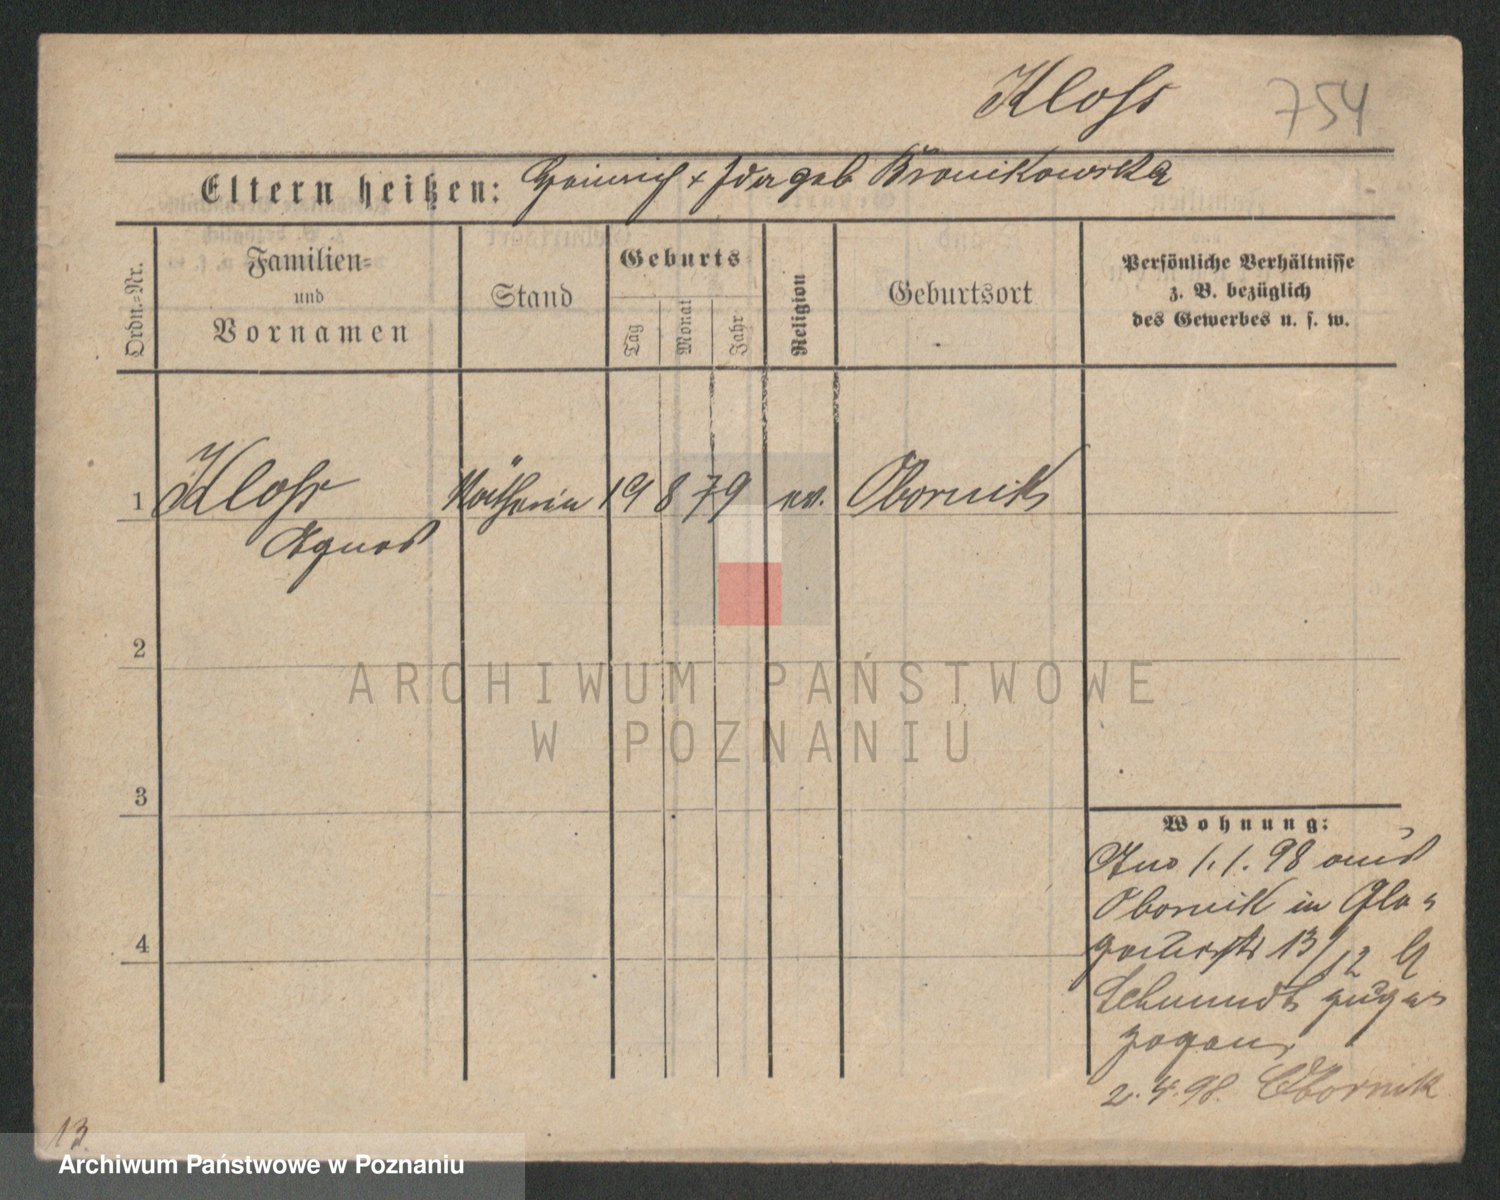 Kloss
754
Eltern heißen: Heinrich + Ida geb Bronikowska
Ordn.=Nr.
Familien=
und
Vornamen
Stand
Geburts
Tag
Monat
Jahr
Religion
Geburtsort
Persönliche Verhältnisse
z. B. bezüglich
des Gewerbes u. s. w.
1 Kloss Näherin 19 8 79 ev. Obornik
Agnes
2
3
4
Wohnung:
1. 1. 98 aus
Obornik in
13/12
Schmidt zuge=
zogen
2. 4. 98. Obornik
13.
ARCHIWUM PAŃSTWOWE
W POZNANIU
Archiwum Państwowe w Poznaniu